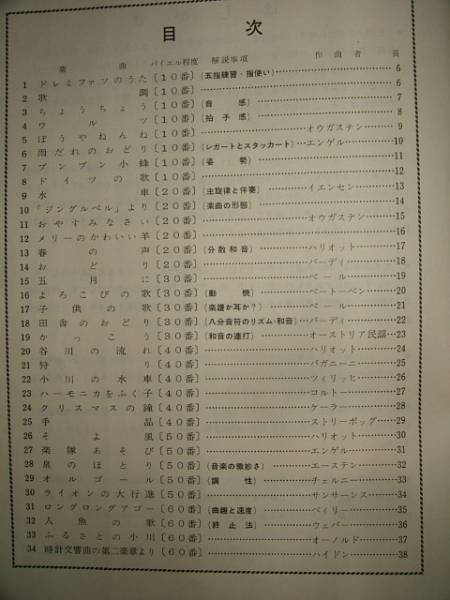 目次
楽曲 バイエル程度 解説事項 作曲者 頁
1 ドレミファソのうた〔10番〕(五指練習・指使い)……6
2 歌調〔10番〕……6
3 ちょうちょう〔10番〕(音感)……7
4 ワルツ〔10番〕(拍子感)……8
5 ぼうやねんね〔10番〕……オウガステン……9
6 雨だれのおどり〔10番〕(レガートとスタッカート)……エンゲル……10
7 ブンブン小蜂〔10番〕(姿勢)……11
8 ドイツの歌〔10番〕……12
9 水車〔20番〕(主旋律と伴奏)……イエンセン……13
10 「ジングルベル」より〔20番〕(楽曲の形態)……14
11 おやすみなさい〔20番〕……オウガステン……15
12 メリーのかわいい羊〔20番〕……16
13 春の声〔20番〕(分散和音)……ハリオット……17
14 おどり〔20番〕……バーディ……18
15 五月に〔30番〕……ベール……19
16 よろこびの歌〔30番〕(動機)……ベートーベン……20
17 子供の歌〔30番〕(楽譜か耳か?)……ベール……21
18 田舎のおどり〔30番〕(八分音符のリズム・和音)……バーディ……22
19 かっこう〔30番〕(和音の連打)……オーストリア民謡……23
20 谷川の流れ〔40番〕……ハリオット……24
21 狩り〔40番〕……パガニーニ……25
22 小川の水車〔40番〕……ツィリッヒ……26
23 ハーモニカをふく子〔40番〕……コルト……27
24 クリスマスの鐘〔40番〕……ケーラー……28
25 手品〔40番〕……ストリーボッグ……29
26 そよ風〔50番〕……ハリオット……30
27 楽隊あそび〔50番〕……エンゲル……31
28 泉のほとり〔50番〕(音楽の微妙さ)……エーステン……32
29 オルゴール〔50番〕(調性)……チェルニー……33
30 ライオンの大行進〔50番〕……サンサーンス……34
31 ロングロングアゴー〔60番〕(曲趣と速度)……ベィリー……35
32 人魚の歌〔60番〕(終止法)……ウェバー……36
33 ふるさとの小川〔60番〕……オーノルド……37
34 時計交響曲の第二楽章より〔60番〕……ハイドン……38